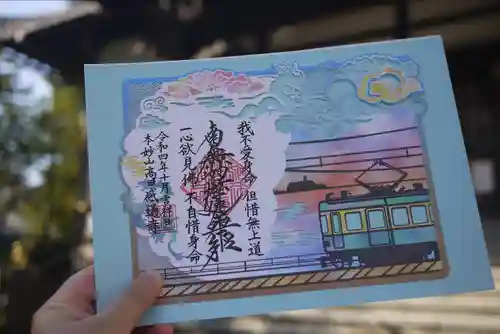 我不愛身命 但惜無上道
南無妙法蓮華経
一心欲見佛 不自惜身命
令和四年十月吉祥日
本妙山高田感通寺